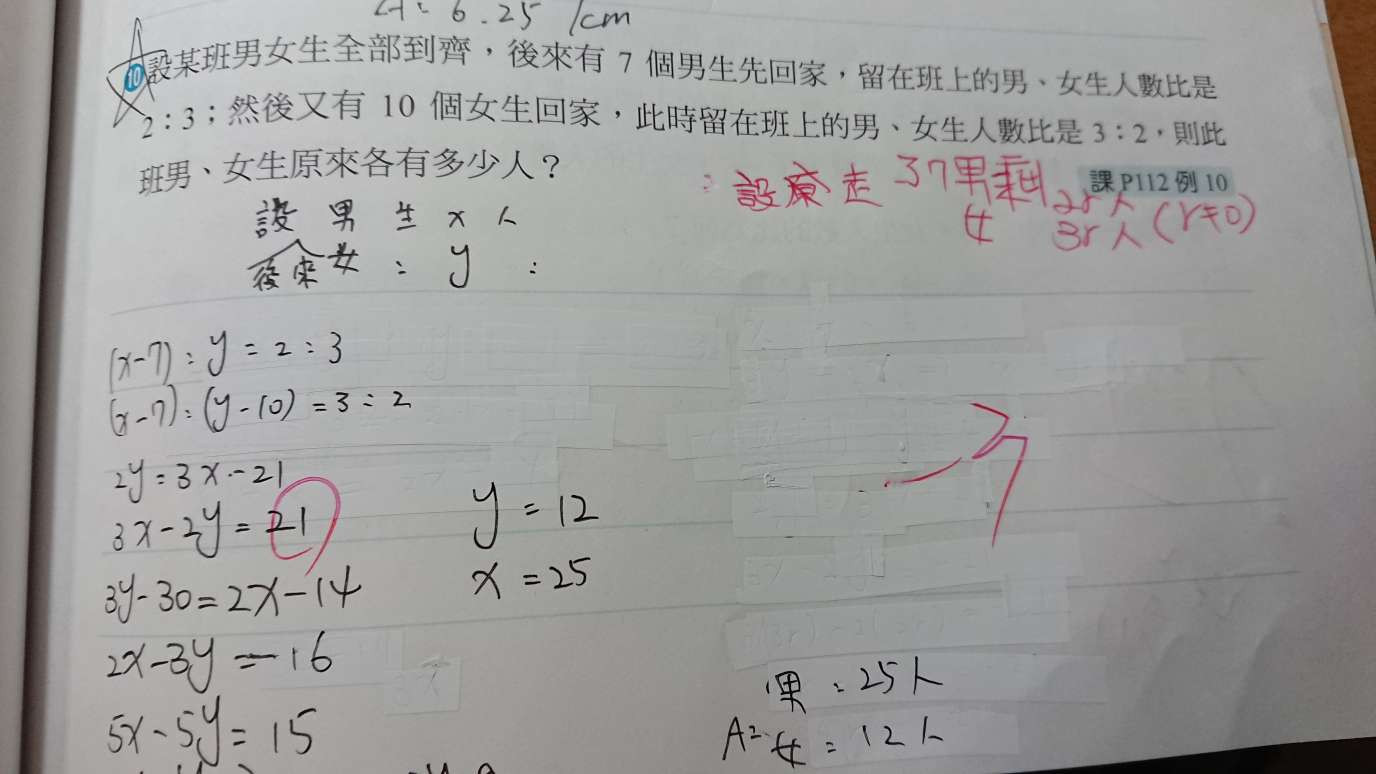 6.25 /cm
10 設某班男女生全部到齊，後來有 7 個男生先回家，留在班上的男、女生人數比是
2：3；然後又有 10 個女生回家，此時留在班上的男、女生人數比是 3：2，則此
班男、女生原來各有多少人？
課 P112 例 10
男剩 2r 人
女 3r 人 (r≠0)
設 男 生 x 人
後來 女 : y :
(x-7) : y = 2 : 3
(x-7) : (y-10) = 3 : 2
2y = 3x - 21
3x - 2y = 21
3y - 30 = 2x - 14
2x - 3y = -16
5x - 5y = 15
y = 12
x = 25
男 : 25人
A: 女 = 12人